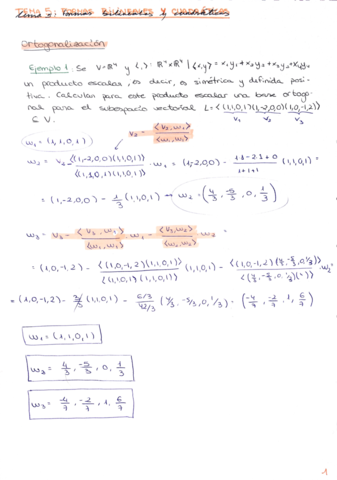 TEMA 5: FORMAS BILINEALES Y CUADRÁTICAS
Ortogonalización
Ejemplo 1. Se V=ℝ⁴ y ⟨,⟩: ℝ⁴×ℝ⁴ | ⟨x,y⟩ = x₁y₁+x₂y₂+x₃y₃+x₄y₄
un producto escalar, es decir, es simétrica y definida posi-
tiva. Calcular para este producto escalar una base ortogo-
nal para el subespacio vectorial L=⟨(1,1,0,1)(1,-2,0,0)(1,0,-1,2)⟩
∈ V. v₁ v₂ v₃
w₁ = (1,1,0,1)
v₂ - ⟨v₂,w₁⟩/⟨w₁,w₁⟩
w₂ = v₂ - ⟨(1,-2,0,0)(1,1,0,1)⟩/⟨(1,1,0,1)(1,1,0,1)⟩ · w₁ = (1,-2,0,0) - (1·1-2·1+0)/(1+1+1) (1,1,0,1) =
= (1,-2,0,0) - 1/3 (1,1,0,1) → w₂ = (4/3, -5/3, 0, 1/3)
w₃ = v₃ - ⟨v₃,w₁⟩/⟨w₁,w₁⟩ · w₁ - ⟨v₃,w₂⟩/⟨w₂,w₂⟩ w₂ =
= (1,0,-1,2) - ⟨(1,0,-1,2)(1,1,0,1)⟩/⟨(1,1,0,1)(1,1,0,1)⟩ (1,1,0,1) - ⟨(1,0,-1,2)(4/3,-5/3,0,1/3)⟩/⟨(4/3,-5/3,0,1/3)(")⟩ · w₂ =
= (1,0,-1,2) - 3/3 (1,1,0,1) - (6/3)/(42/9) (4/3, -5/3, 0, 1/3) = (-4/7, -2/7, 1, 6/7)
w₁ = (1,1,0,1)
w₂ = 4/3, -5/3, 0, 1/3
w₃ = -4/7, -2/7, 1, 6/7
1